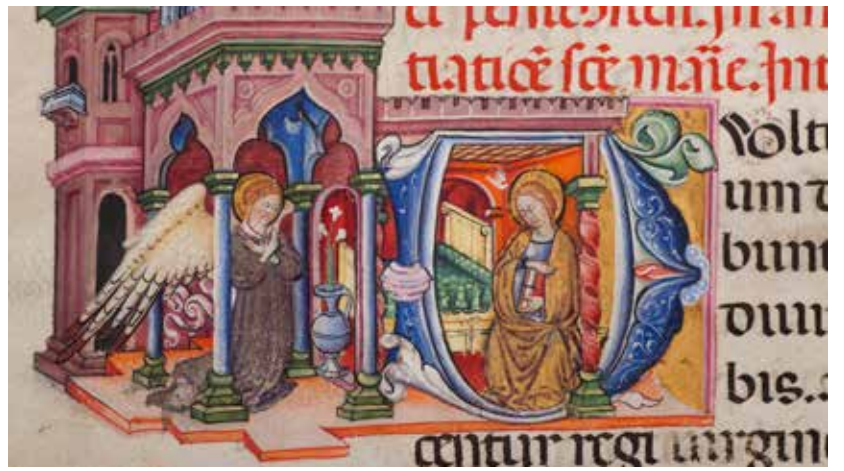 tiatiōe scē marie. Int
Voltu
um d
bunt
diui
bis.
centur regi uirgine